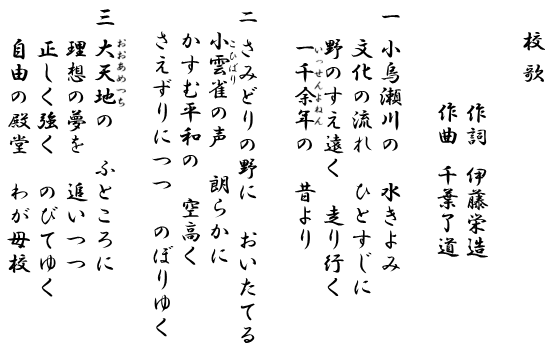 校歌
作詞 伊藤栄造
作曲 千葉了道
一 小烏瀬川の 水きよみ
文化の流れ ひとすじに
野のすえ遠く 走り行く
一千余年の 昔より
いっせんよねん
二 さみどりの野に おいたてる
小雲雀の声 朗らかに
こひばり
かすむ平和の 空高く
さえずりにつつ のぼりゆく
三 大天地の ふところに
おおあめつち
理想の夢を 追いつつ
正しく強く のびてゆく
自由の殿堂 わが母校